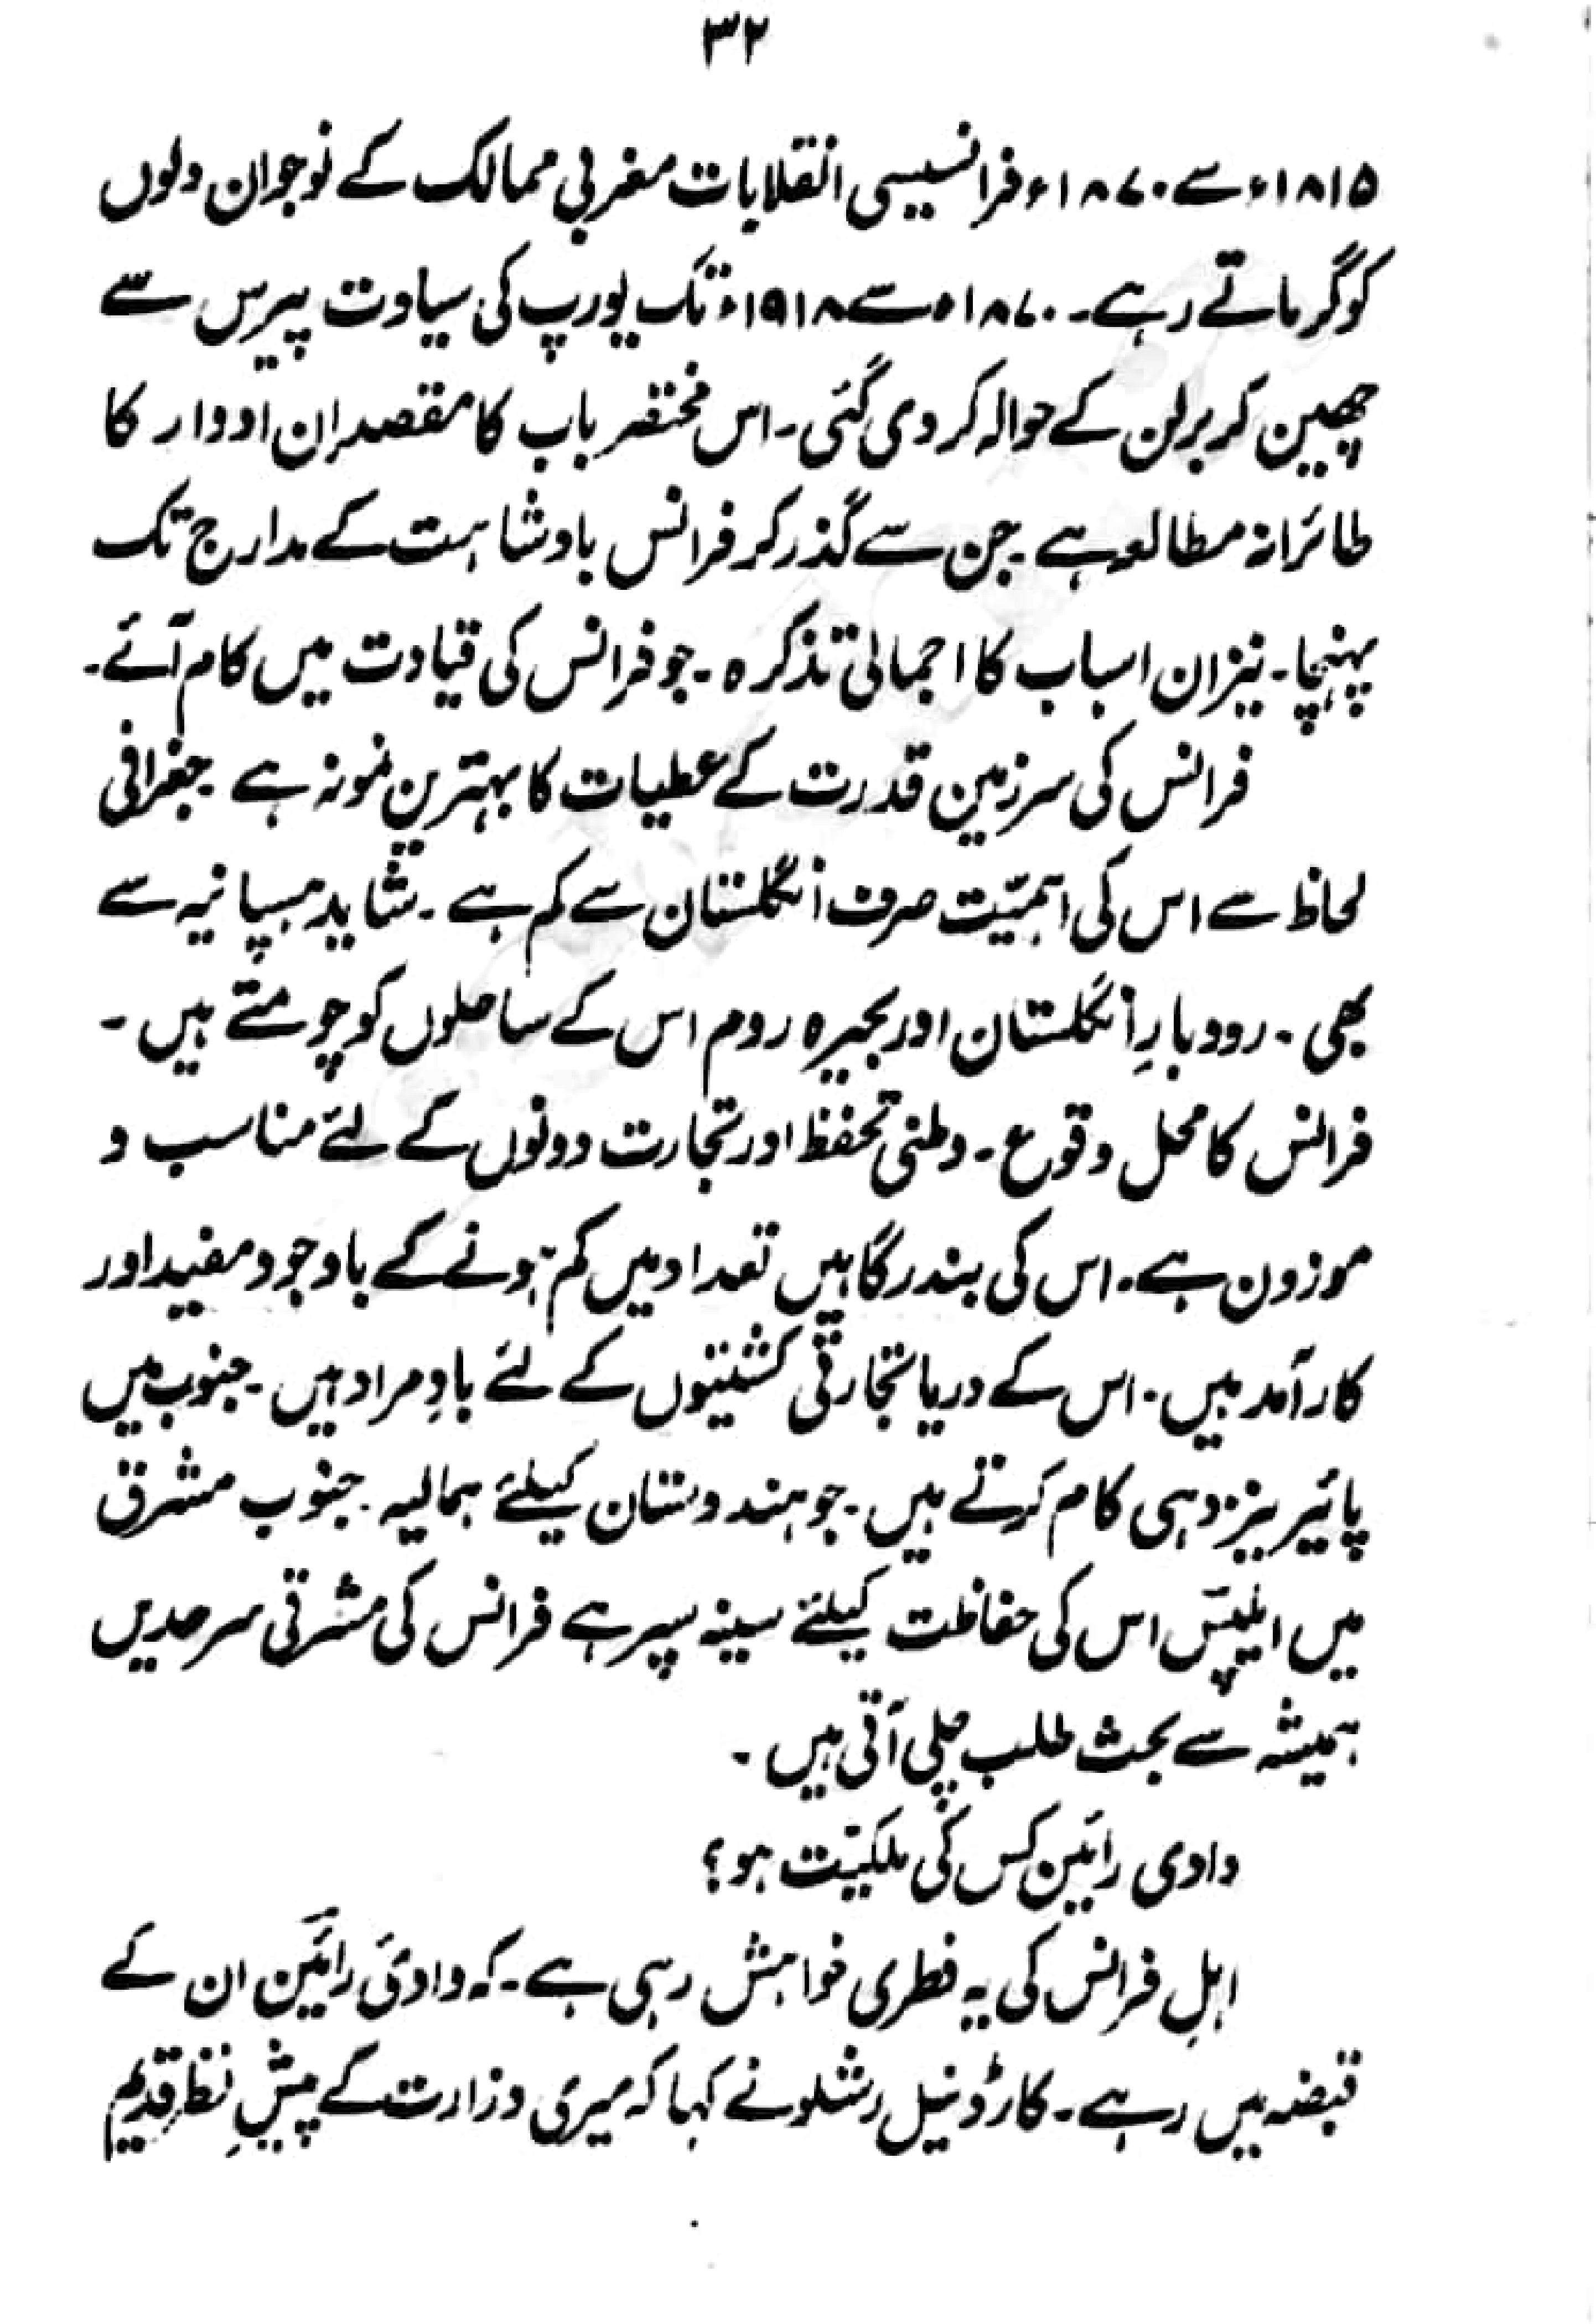 ۳۲
۱۸۱۵ء سے ۱۸۷۰ء فرانسیسی انقلابات مغربی ممالک کے نوجوان دلوں
کو گرماتے رہے۔ ۱۸۷۰ء سے ۱۹۱۸ء تک یورپ کی سیادت پیرس سے
چھین کر برلن کے حوالہ کر دی گئی۔ اس مختصر باب کا مقصد ان ادوار کا
طائرانہ مطالعہ ہے۔ جن سے گذر کر فرانس بادشاہت کے مدارج تک
پہنچا۔ نیز ان اسباب کا اجمالی تذکرہ۔ جو فرانس کی قیادت میں کام آئے۔
فرانس کی سرزمین قدرت کے عطیات کا بہترین نمونہ ہے۔ جغرافی
لحاظ سے اس کی اہمیّت صرف انگلستان سے کم ہے۔ شاید ہسپانیہ سے
بھی۔ رودبارِ انگلستان اور بحیرہ روم اس کے ساحلوں کو چومتے ہیں۔
فرانس کا محل وقوع۔ وطنی تحفظ اور تجارت دونوں کے لئے مناسب و
موزون ہے۔ اس کی بندرگاہیں تعداد میں کم ہونے کے باوجود مفید اور
کار آمد ہیں۔ اس کے دریا تجارتی کشتیوں کے لئے بادِ مراد ہیں۔ جنوب میں
پائیرینز وہی کام کرتے ہیں۔ جو ہندوستان کیلئے ہمالیہ۔ جنوب مشرق
میں ایلپس اس کی حفاظت کیلئے سینہ سپر ہے فرانس کی مشرقی سرحدیں
ہمیشہ سے بحث طلب چلی آتی ہیں۔
وادی رائین کس کی ملکیّت ہو؟
اہلِ فرانس کی یہ فطری خواہش رہی ہے۔ کہ وادیٔ رائین ان کے
قبضہ میں رہے۔ کارڈنیل رشلو نے کہا کہ میری وزارت کے پیشِ نظر قدیم